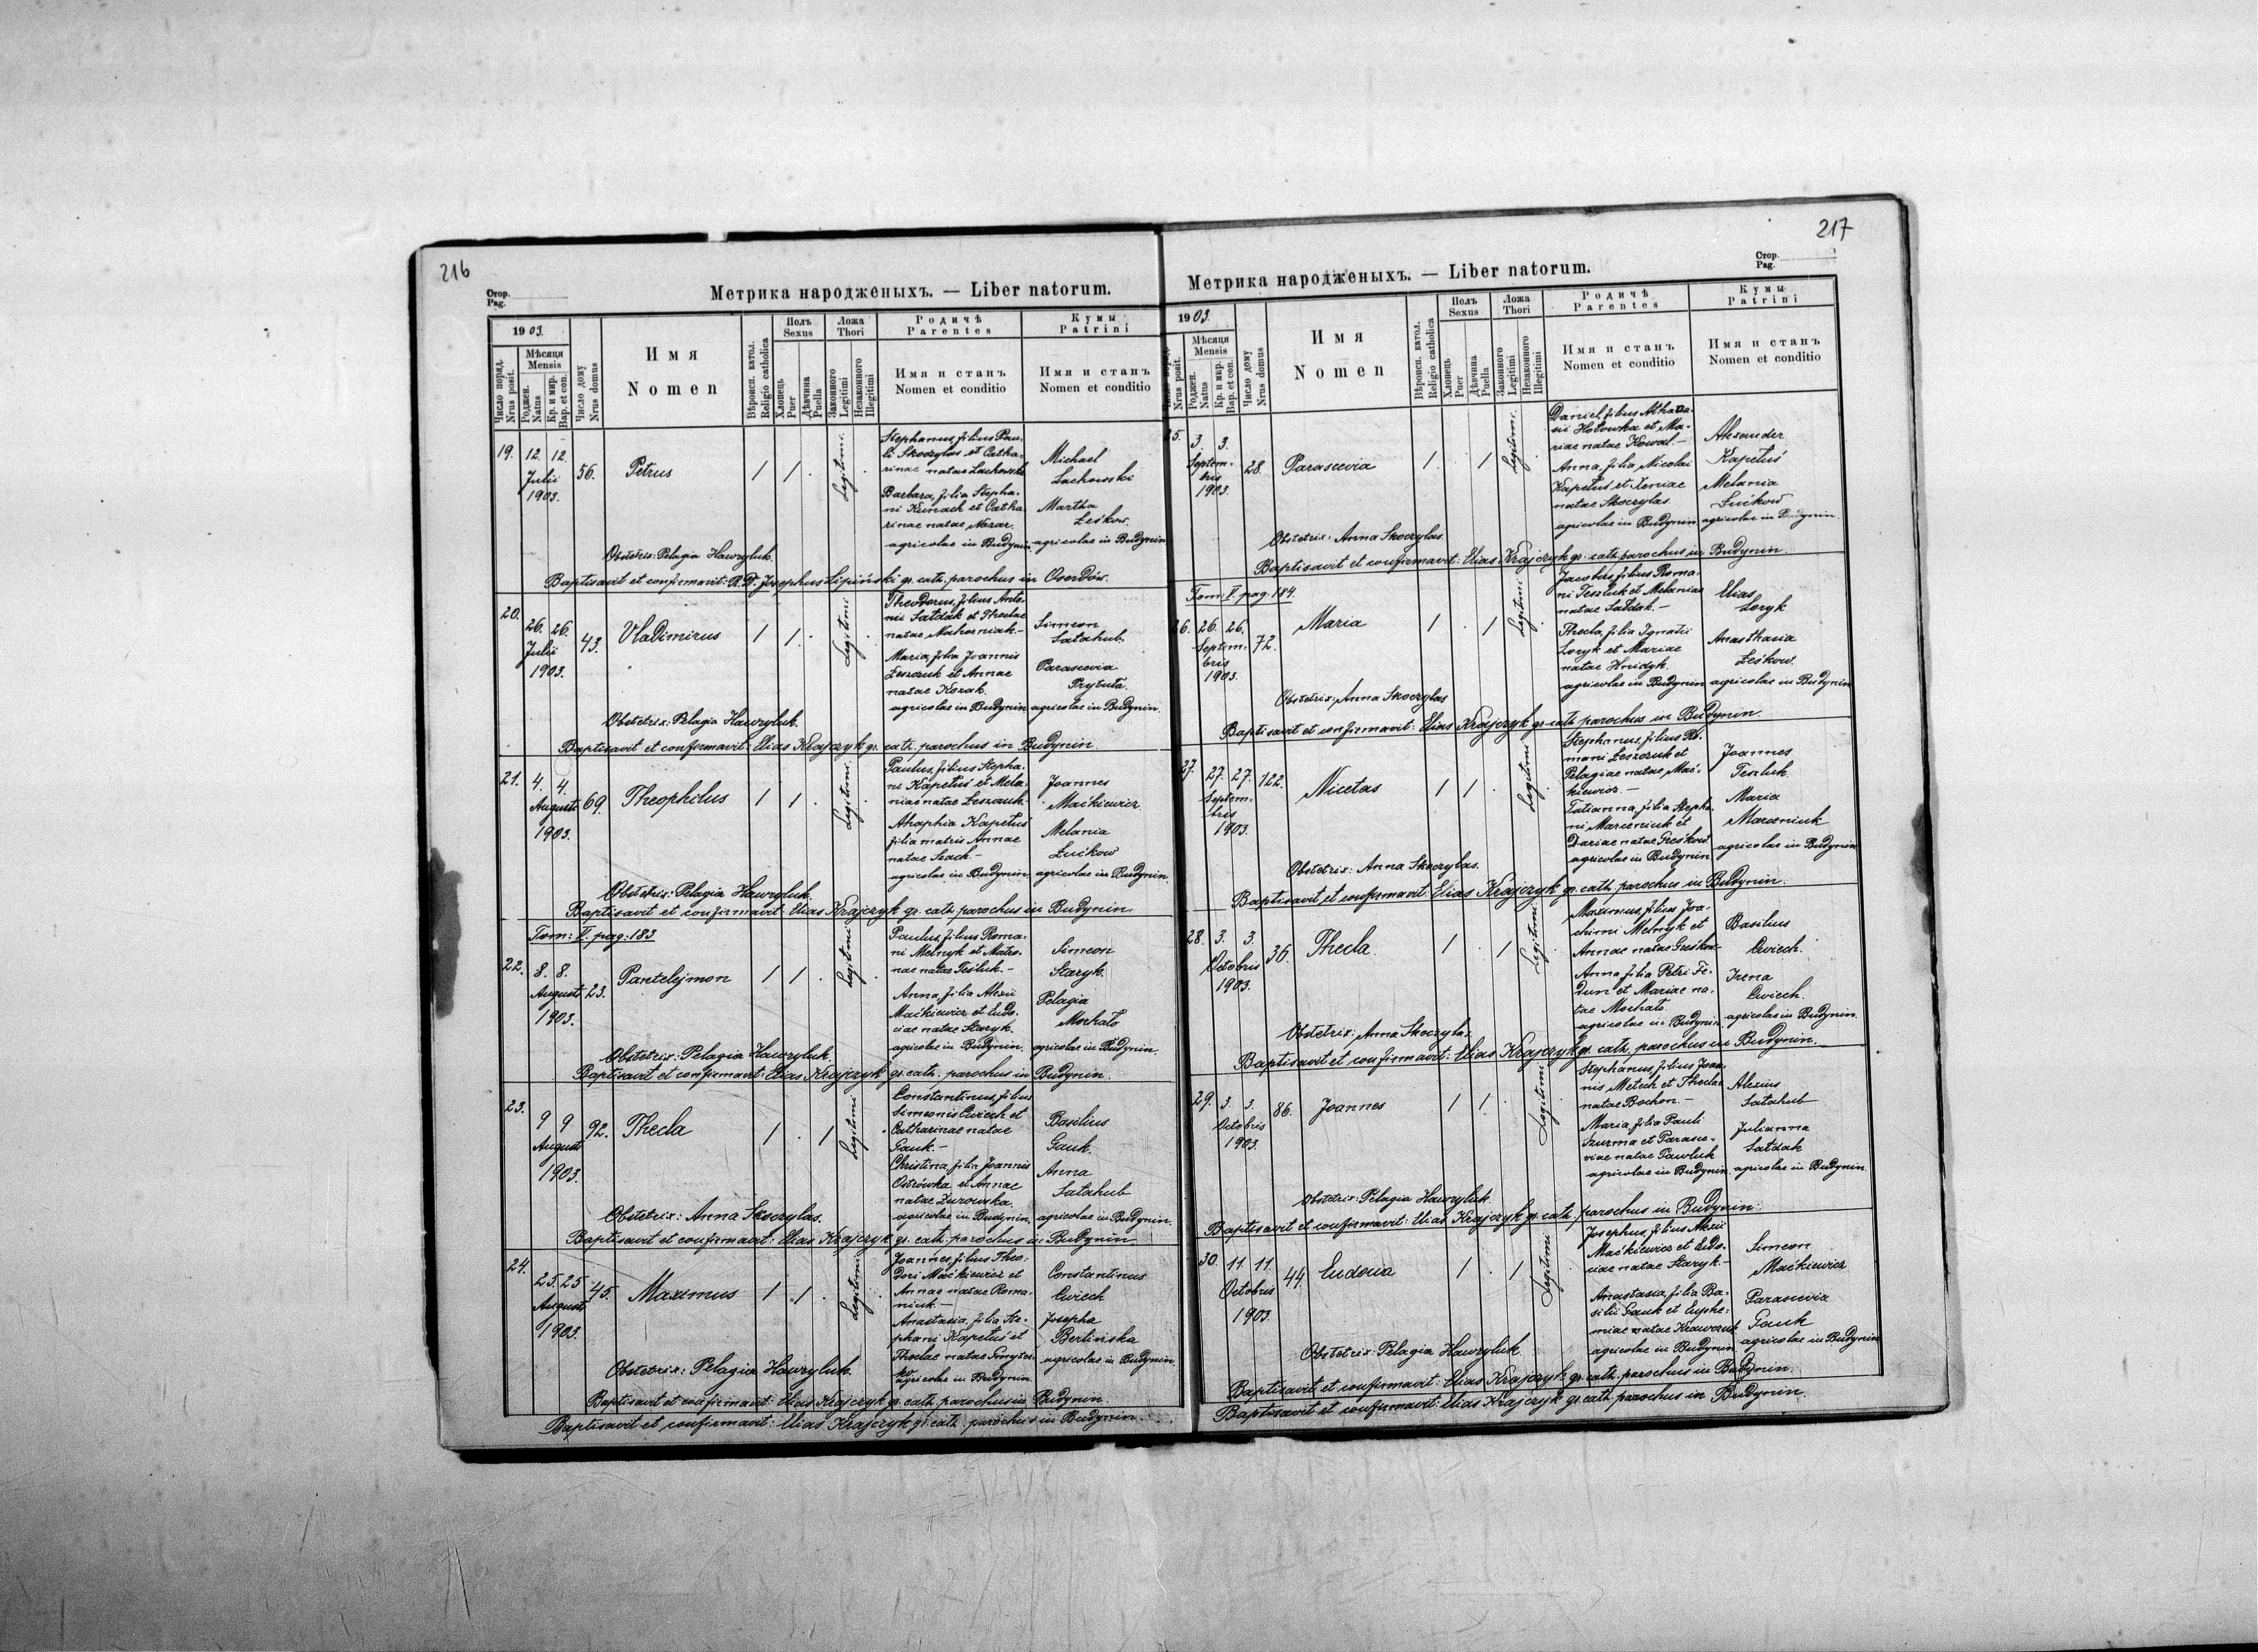 216
Стор.
Pag.
Метрика народженыхъ. — Liber natorum.
1903.
Число поряд.
Nrus posit.
Мѣсяця
Mensis
Роджен.
Natus
Кр. и мвр.
Bap. et con.
Число дому
Nrus domus
Имя
Nomen
Вѣроисп. катол.
Religio catholica
Полъ
Sexus
Хлопець
Puer
Дѣвчина
Puella
Ложа
Thori
Законного
Legitimi
Незаконного
Illegitimi
Родичѣ
Parentes
Имя и станъ
Nomen et conditio
Кумы
Patrini
Имя и станъ
Nomen et conditio
19. 12. 12.
Julii
1903.
56. Petrus / / . Legitimi. .
Stephanus, filius Pau-
li Skoczylas et Catha-
rinae natae Lachowski
Barbara, filia Stepha-
ni Kunach et Catha-
rinae natae Nazar.
agricolae in Budynin.
Michael
Lachowski
Martha
Leśkow.
agricolae in Budynin
Obstetrix: Pelagia Hawryluk.
Baptisavit et confirmavit: R. D. Josephus Lipiński gr. cath. parochus in Oserdów.
20. 26. 26.
Julii
1903.
43. Vladimirus / / . Legitimi .
Theodorus, filius Anto-
nii Sałdak et Theclae
natae Nahorniak.-
Maria, filia Joannis
Leszczuk et Annae
natae Kozak.
agricolae in Budynin
Simeon
Sałahub
Parascevia
Prytuła.
agricolae in Budynin.
Obstetrix: Pelagia Hawryluk.
Baptisavit et confirmavit: Elias Krajczyk gr. cath. parochus in Budynin.
21. 4. 4.
Augusti
1903.
69. Theophilus / / . Legitimi. .
Paulus, filius Stepha-
ni Kapetuś et Mela-
niae natae Leszczuk.
Ahaphia Kapetuś
filia matris Annae
natae Stach.-
agricolae in Budynin
Joannes
Maćkiewicz
Melania
Łućkow
agricolae in Budynin.
Obstetrix: Pelagia Hawryluk.
Baptisavit et confirmavit: Elias Krajczyk gr. cath. parochus in Budynin
Tom: V. pag: 183
22. 8. 8.
Augusti
1903.
23. Pantelejmon / / . Legitimi .
Paulus, filius Roma-
ni Melnyk et Matro-
nae natae Teśluk.-
Anna, filia Alexii
Maćkiewicz et Eudo-
ciae natae Staryk.
agricolae in Budynin.
Simeon
Staryk
Pelagia
Mochało
agricolae in Budynin.
Obstetrix: Pelagia Hawryluk.
Baptisavit et confirmavit: Elias Krajczyk gr. cath. parochus in Budynin.
23. 9 9
Augusti
1903.
92. Thecla / . / Legitimi
Constantinus, filius
Simeonis Cwiech et
Catharinae natae
Gauk.-
Christina, filia Joannis
Ostrówka et Annae
natae Żurowska.
agricolae in Budynin.
Basilius
Gauk.
Anna
Sałahub
agricolae in Budynin.
Obstetrix: Anna Skoczylas.
Baptisavit et confirmavit: Elias Krajczyk gr. cath. parochus in Budynin
24. 25. 25
Augusti
1903.
45. Maximus / / . Legitimi .
Joannes, filius Theo-
dori Maćkiewicz et
Annae natae Roma-
niuk.-
Anastasia, filia Ste-
phani Kapetuś et
Theclae natae
agricolae in Budynin.
Constantinus
Cwiech
Josepha
Berlińska
agricolae in Budynin
Obstetrix: Pelagia Hawryluk.
Baptisavit et confirmavit: Elias Krajczyk gr. cath. parochus in Budynin.
Baptisavit et confirmavit: Elias Krajczyk gr. cath. parochus in Budynin.
217
Стор.
Pag.
Метрика народженыхъ. — Liber natorum.
1903.
Nrus posit.
Мѣсяця
Mensis
Роджен.
Natus
Кр. и мвр.
Bap. et con.
Число дому
Nrus domus
Имя
Nomen
Вѣроисп. катол.
Religio catholica
Полъ
Sexus
Хлопець
Puer
Дѣвчина
Puella
Ложа
Thori
Законного
Legitimi
Незаконного
Illegitimi
Родичѣ
Parentes
Имя и станъ
Nomen et conditio
Кумы
Patrini
Имя и станъ
Nomen et conditio
25. 3. 3.
Septem-
bris
1903.
28. Parascevia / . / Legitimi. .
Daniel, filius Athana-
sii Hołowka et Ma-
riae natae Kowal.-
Anna, filia Nicolai
Kapetuś et Xeniae
natae Skoczylas
agricolae in Budynin
Alexander
Kapetuś
Melania
Łućkow
agricolae in Budynin.
Obstetrix: Anna Skoczylas
Baptisavit et confirmavit: Elias Krajczyk gr. cath. parochus in Budynin.
Tom: V. pag. 184.
26. 26. 26.
Septem-
bris
1903.
72. Maria / . / Legitimi .
Jacobus, filius Roma-
ni Teszluk et Melaniae
natae Sałdak.-
Thecla, filia Ignatii
Loryk et Mariae
natae Hnidyk.
agricolae in Budynin
Elias
Loryk
Anasthasia
Leśkow.
agricolae in Budynin
Obstetrix: Anna Skoczylas
Baptisavit et confirmavit: Elias Krajczyk gr. cath. parochus in Budynin.
27. 27. 27.
Septem-
bris
1903.
122. Nicetas / / . Legitimi .
Stephanus, filius Ro-
mani Leszczuk et
Pelagiae natae Mać-
kiewicz.-
Tatianna, filia Stepha-
ni Marceniuk et
Dariae natae Greśkow
agricolae in Budynin
Joannes
Teszluk
Maria
Marceniuk
agricolae in Budynin
Obstetrix: Anna Skoczylas.
Baptisavit et confirmavit: Elias Krajczyk gr. cath. parochus in Budynin.
28. 3. 3.
Octobris
1903.
36. Thecla. / . / Legitimi
Maximus, filius Joa-
chimi Melnyk et
Annae natae Greśkow-
Anna, filia Petri Fe-
dun et Mariae na-
tae Mochało.
agricolae in Budynin
Basilius
Cwiech.
Irena
Cwiech.
agricolae in Budynin.
Obstetrix: Anna Skoczylas
Baptisavit et confirmavit: Elias Krajczyk gr. cath. parochus in Budynin.
29. 3. 3.
Octobris
1903.
86. Joannes / / . Legitimi .
Stephanus, filius Joan-
nis Metech et Theclae
natae Bochon.-
Maria, filia Pauli
Szurma et Parasce-
viae natae Pawluk
agricolae in Budynin.
Alexius
Sałahub
Julianna
Sałdak
agricolae in Budynin.
Obstetrix: Pelagia Hawryluk.
Baptisavit et confirmavit: Elias Krajczyk gr. cath. parochus in Budynin.
30. 11. 11.
Octobris
1903.
44. Eudocia / . / Legitimi .
Josephus, filius Alexii
Maćkiewicz et Eudo-
ciae natae Staryk.-
Anastasia, filia Ba-
silii Gauk et Euphe-
miae natae Krawczuk
agricolae in Budynin
Simeon
Maćkiewicz
Parascevia
Gauk
agricolae in Budynin
Obstetrix: Pelagia Hawryluk.
Baptisavit et confirmavit: Elias Krajczyk gr. cath. parochus in Budynin.
Baptisavit et confirmavit: Elias Krajczyk gr. cath. parochus in Budynin.